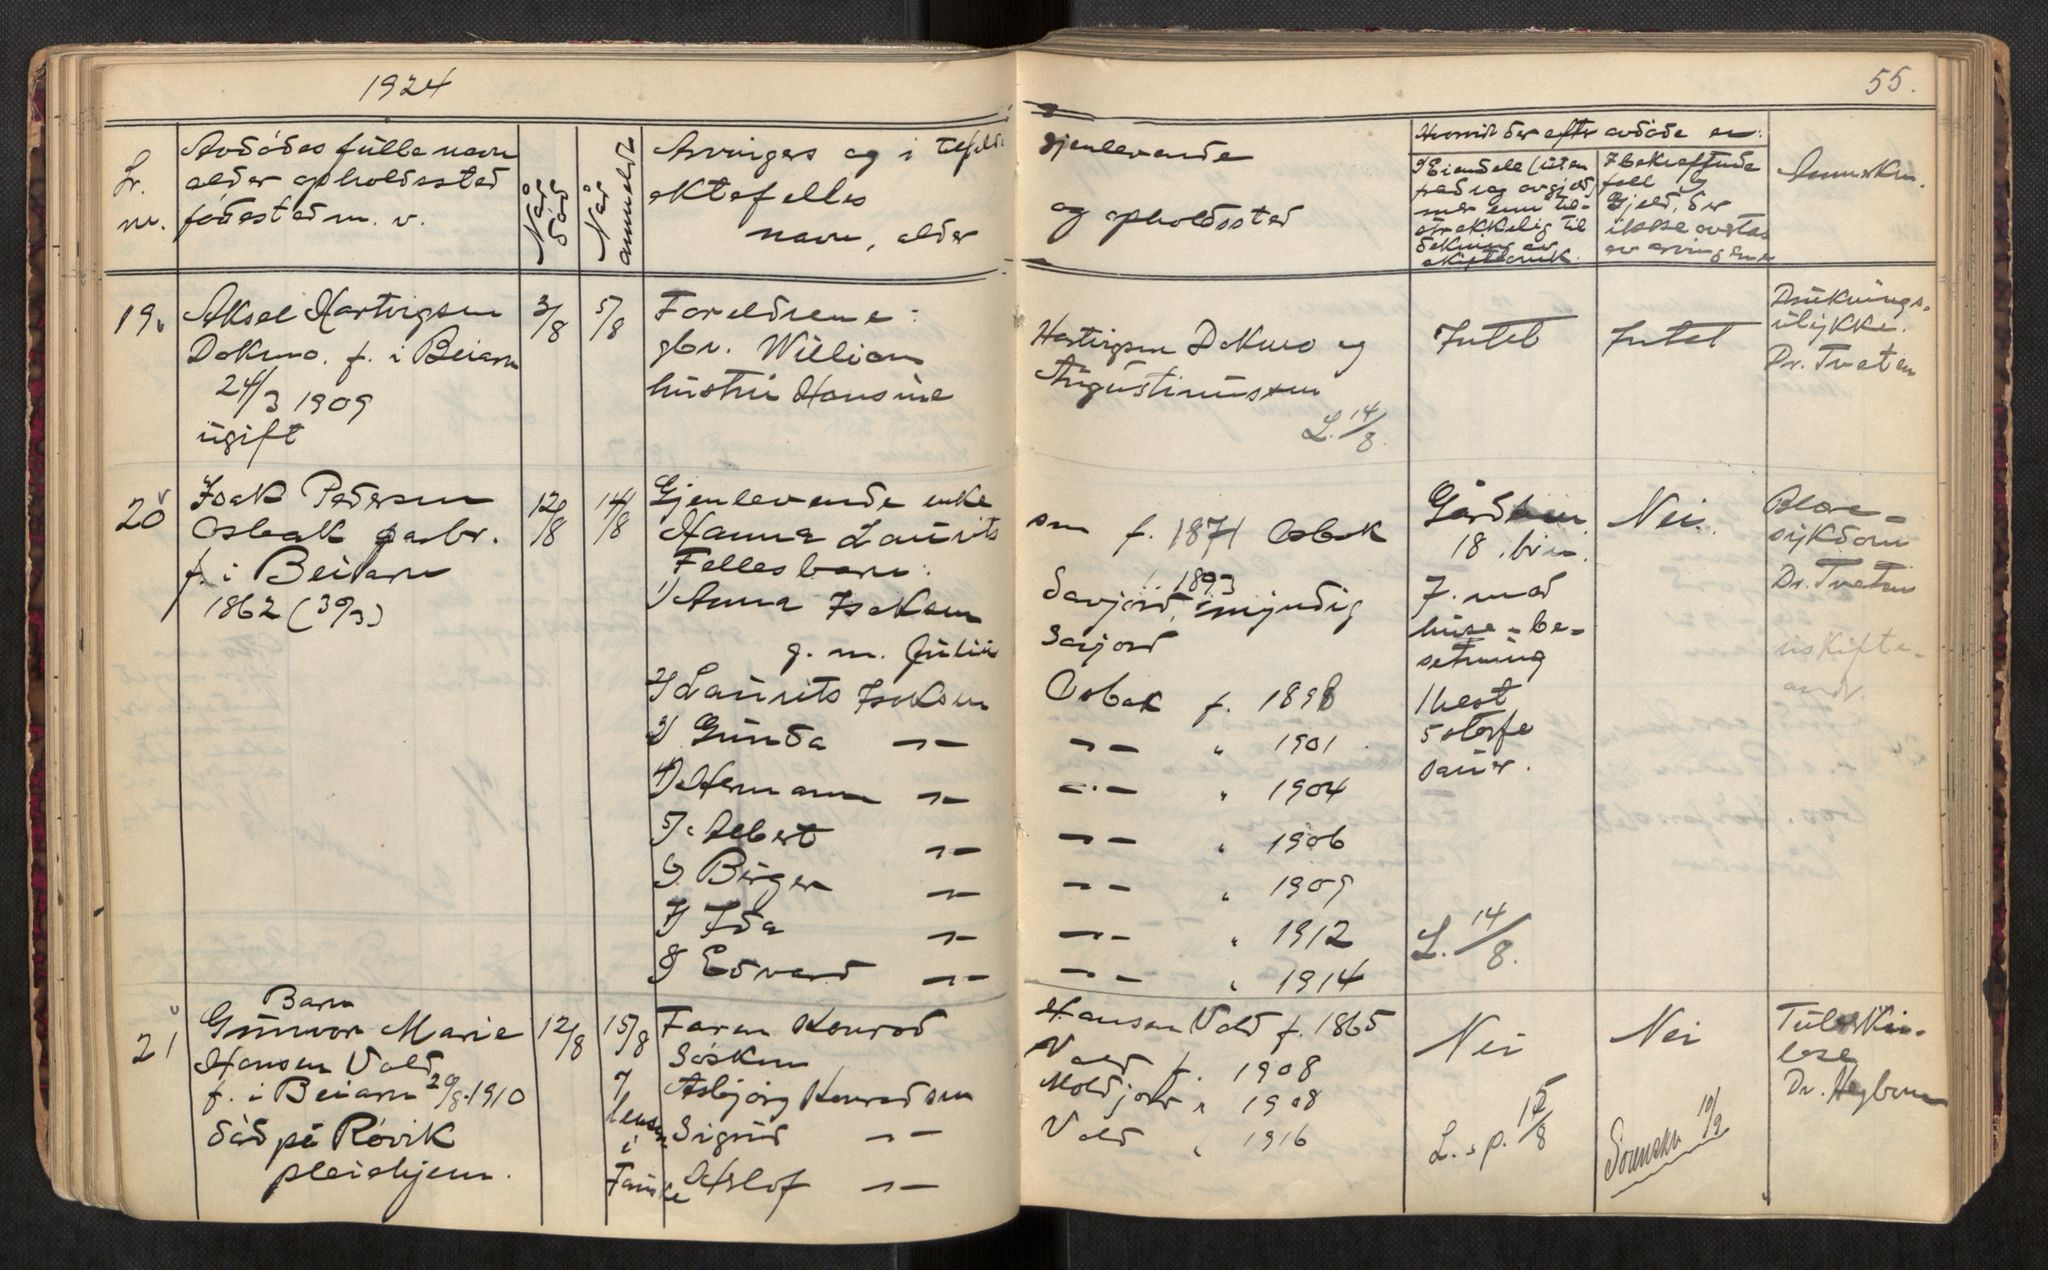 1924
55.
Lr. nr.
Avdødes fulle navn
alder opholdssted
fødested m. v.
Når død
Når anmeldt
Arvingers og i tilfelde
ektefelles
navn, alder
gjenlevende
og opholdssted
Hvorvidt der efter avdøde er:
Eiendele (uten
fradrag av gjæld)
mer enn til-
strækkelig til
dekning av
skifteomk.
I bekreftende
fall og
Gjeld, der
ikke overtas
av arvingene
Anmerkn.
19.
Aksel Hartvigsen
Dokmo. f. i Beiarn
24/3 1909
ugift
3/8
5/8
Foreldrene:
gbr. William
hustru Hansine
Hartvigsen Dokmo og
Augustinussen
L. 14/8.
Intet
Intet
Druknings-
ulykke.
Dr. Tveten
20
Isak Pedersen
Osbak garbr.
f. i Beiarn
1862 (30/3)
12/8
14/8
Gjenlevende enke
Hanna Laurits
Fellesbarn:
1) Anna Isaksen
g. m. Julius
2) Laurits Isaksen
3) Gunda —"—
4) Hermann —"—
5) Albert —"—
6) Birger —"—
7) Ida —"—
8) Edvard —"—
sen f. 1871 Osbak
1893
Savjord, myndig
Savjord
Osbak f. 1898
—"— " 1901.
—"— " 1904
—"— " 1906
—"— " 1909
—"— " 1912
—"— " 1914
18. br.n.
7. med
huse - be-
setning
1 hest
5 storfe
sauer.
L. 14/8.
Nei.
Blære-
sykdom
Dr. Tveten
uskifte-
andr.
21
Barn
Gunvor Marie
Hansen Vold
f. i Beiarn 29/8-1910
død på Røvik
pleiehjem.
12/8
15/8
Faren Konrad
Søsken
Asbjørg Konradsen
Sigrid —"—
Aslof —"—
7/
lensm
i
Fauske
Hansen Vold f. 1865
Vold f. 1908
Moldjord " 1908
Vold " 1916
Nei
L. s. p. 15/8
Nei
Sorenskr. 10/9
Tuberku-
lose
Dr. Hegbom